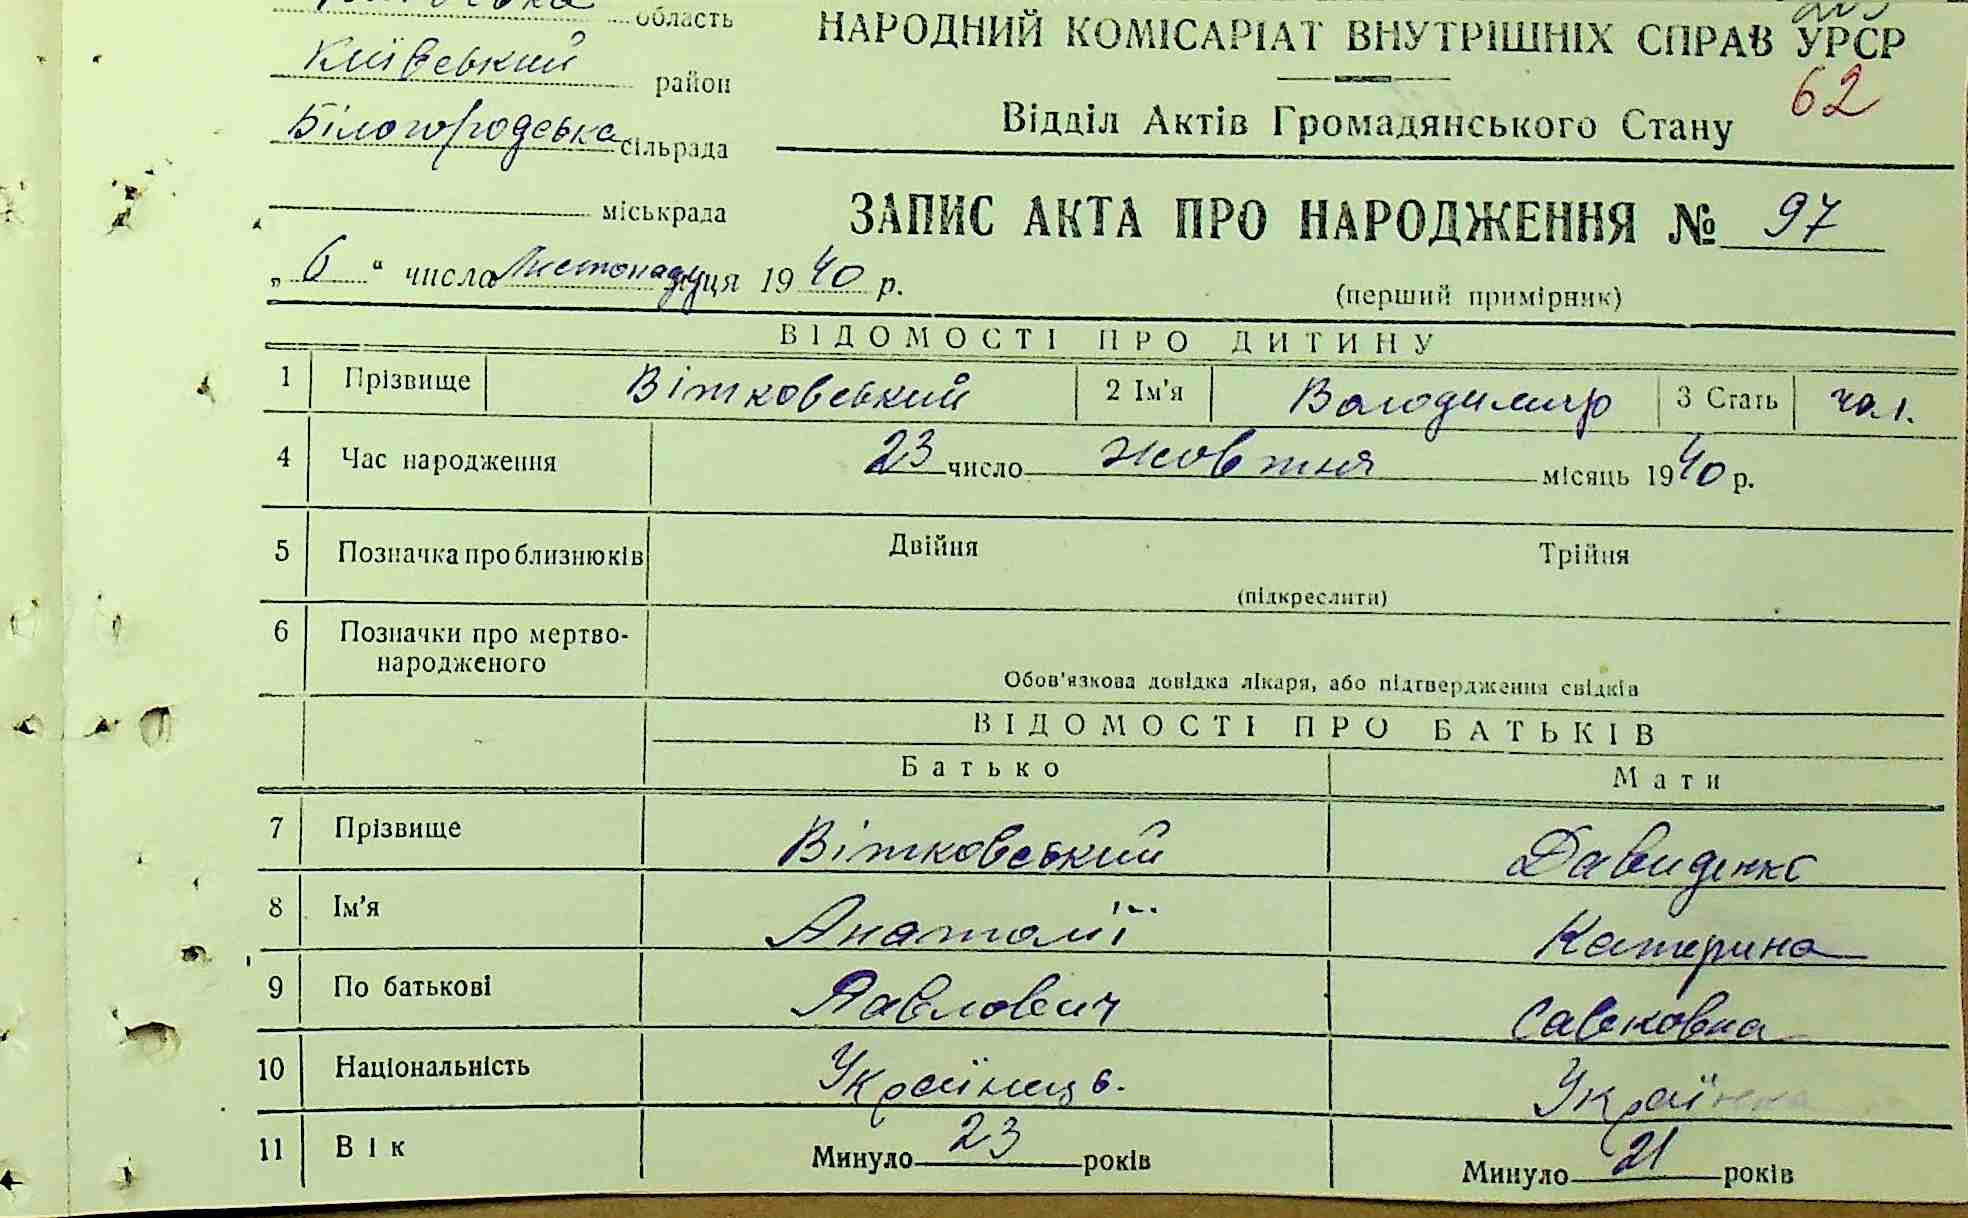 область
НАРОДНИЙ КОМІСАРІАТ ВНУТРІШНІХ СПРАВ УРСР
Київський район
62
Білогородська сільрада
Відділ Актів Громадянського Стану
міськрада
ЗАПИС АКТА ПРО НАРОДЖЕННЯ № 97
„ 6 “ числа Листопаду місяця 1940 р.
(перший примірник)
ВІДОМОСТІ ПРО ДИТИНУ
1 Прізвище Вітковський 2 Ім'я Володимир 3 Стать чол.
4 Час народження 23 число жовтня місяць 1940 р.
5 Позначка про близнюків Двійня Трійня
(підкреслити)
6 Позначки про мертво-
народженого
Обов'язкова довідка лікаря, або підтвердження свідків
ВІДОМОСТІ ПРО БАТЬКІВ
Батько Мати
7 Прізвище Вітковський Давиденко
8 Ім'я Анатолії Катерина
9 По батькові Павлович Савковна
10 Національність Українець. Українка
11 Вік Минуло 23 років Минуло 21 років